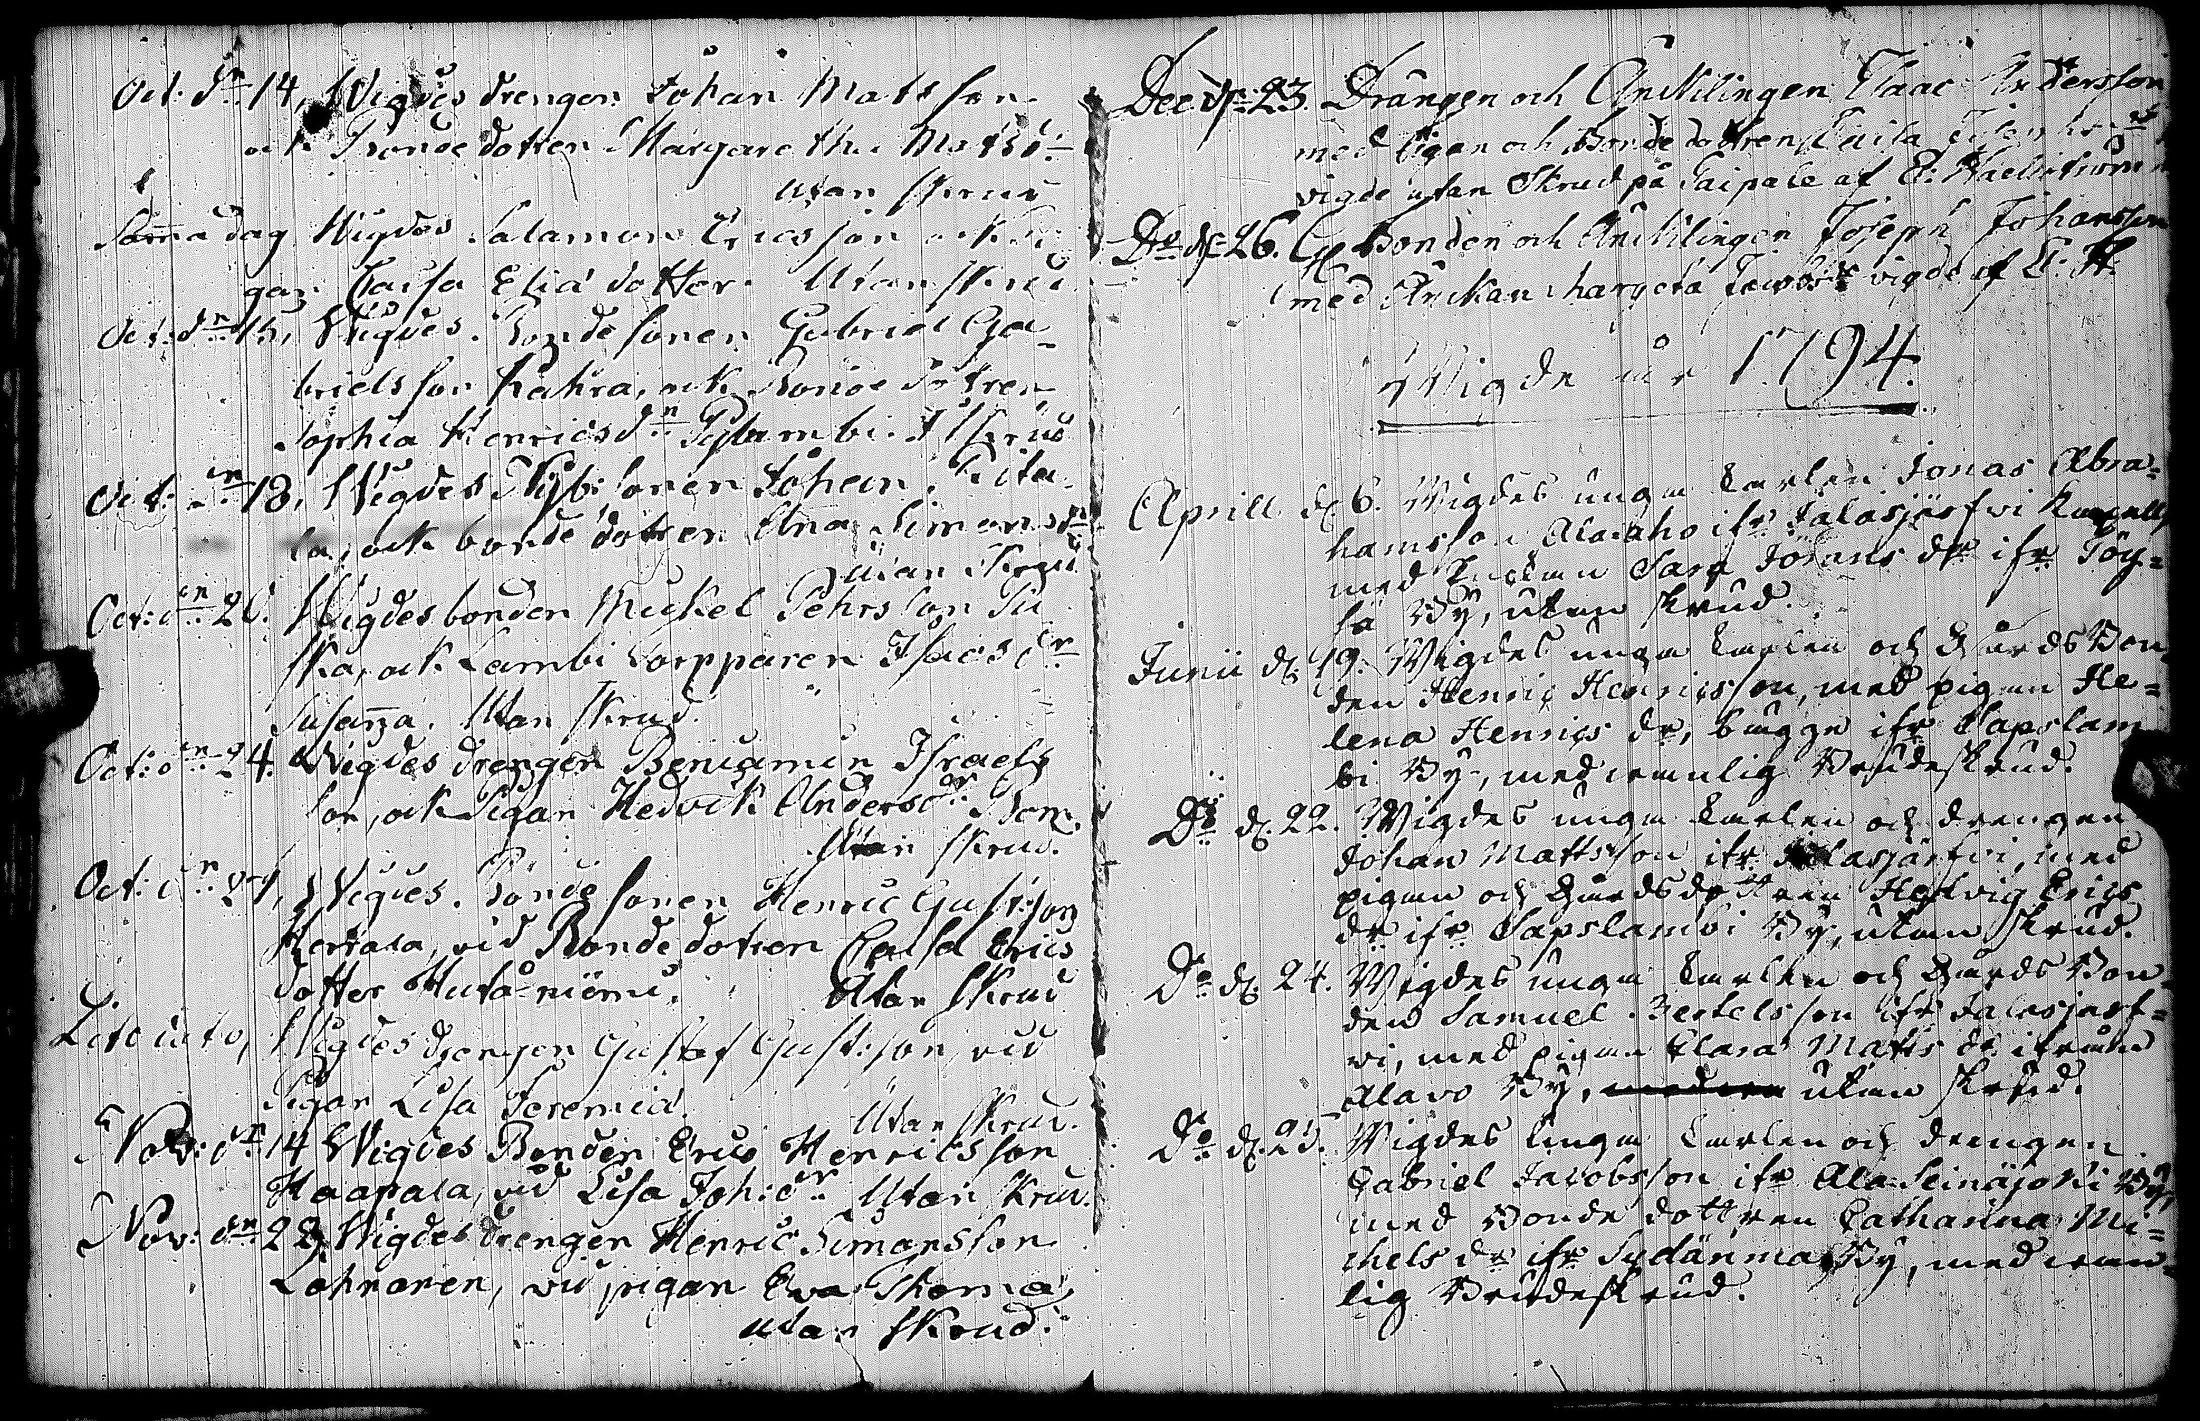 Oct: dn 14, Wigdes drengen Johan Matsson
ock Bonde dotren Margaretha Matsdr
Utan skrud
Samma dag Wigdes Salamon Ericsson ock Pi
gan Caisa Elia dotter. Utan skrud
Oct: dn 15, Wigdes Bonde sonen Gabriel Ga-
brielsson Kahra, ock Bonde dotren
Sophia Henricsdr I skrud
Oct: dn 18, Wigdes Nyb: sonen Johan
la, ock bonde dotren Anna Simonsdr
Utan skrud
Oct: dn 20. Wigdes bonden Mickel Pehrsson Pu
ska, ock Lambi torpparen Isacs dr
Susanna. Utan skrud.
Oct: dn 24. Wigdes drengen Beniamin Israels
son, ock Pigan Hedvick Anders dr
Utan skrud.
Oct: dn 24, Wigdes Bonde sonen Henric Gust:son
Kertala, vid Bonde dotren Caisa Erics
dotter Hutaniemi. Utan skrud
Dito dito, Wigdes drengen Gustaf Gust:son, vid
Pigan Lisa Jeremiæ.
Utan skrud.
Nov: dn 14 Wigdes Bonden Eric Henricsson
Haapala, vid Lisa Joh: dr Utan skrud.
Nov: dn 22, Wigdes drengen Henric Simonsson
Lohnanen, vid pigan Eva Thomæ
utan skrud.
Dec dn: 23. Drängen och Änkilingen Isaac Andersson
med Pigan och Bonde dottren Caisa
vigde utan Skrud på Taipale af E: Kjellström
Do dn 26. Bonden och Änkilingen Joseph Johansson
med Änkan Margeta Jacobsdr vigde af E: K.
Wigde år 1794.
Aprill d. 6. Wigdes unga karlen Jonas Abra-
hamsson Alaaho ifr. Jalasjärfvi Kapell
med Enkan Sara Johans dr ifr. Töy-
sä By, utan skrud.
Junii d. 19. Wigdes unga karlen och Gårds Bon-
den Henric Henricsson, med pigan He-
lena Henrics dr, bägge ifr. Sapslam
bi By, med wanlig Brudeskrud.
Do d. 22. Wigdes unga karlen och drengen
Johan Mattsson ifr Jalasjärfvi, med
pigan och Gårdsdottren Hedvig Erics
dr ifr. Sapslambi By, utan skrud.
Do d. 24. Wigdes unga karlen och Gårds Bon
den Samuel Bertelsson ifr Jalasjerf-
vi, med pigan Clara Matts dr ifrån
Alavo By, utan skrud.
Do d. 25. Wigdes unga karlen och drengen
Gabriel Jacobsson ifr Ala Seinäjoki By,
med Bonde dottren Catharina Mi-
chels dr ifr Sydänma By, med wan-
lig Brudeskrud.